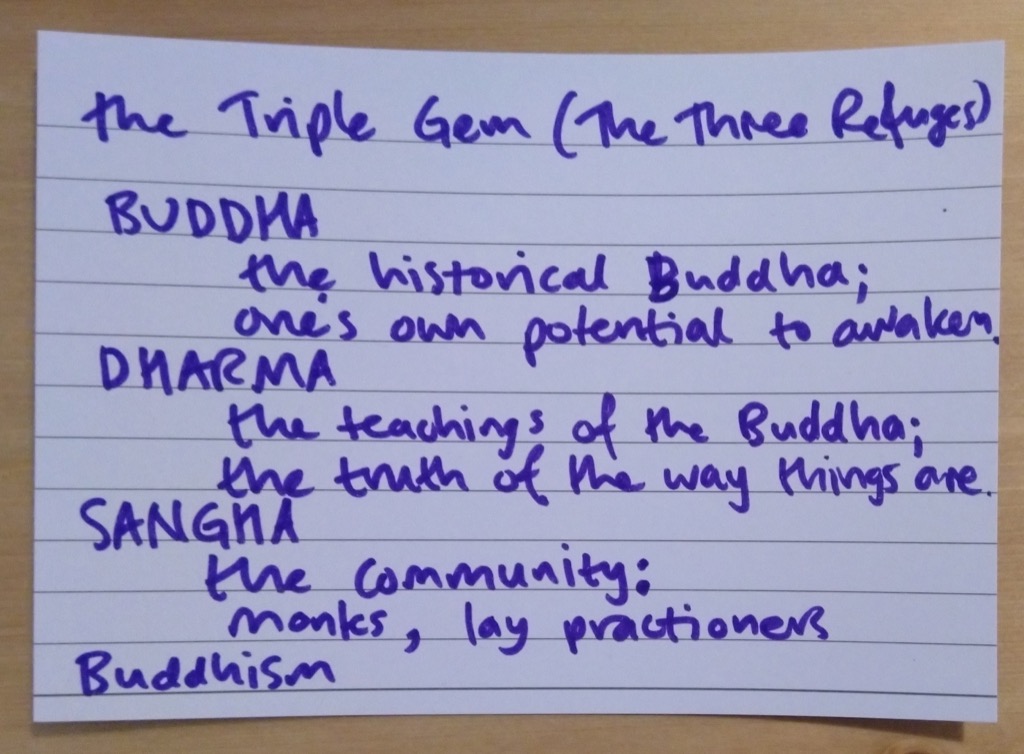 the Triple Gem (The Three Refuges)
BUDDHA
the historical Buddha;
one's own potential to awaken.
DHARMA
the teachings of the Buddha;
the truth of the way things are.
SANGHA
the community:
monks, lay practioners
Buddhism